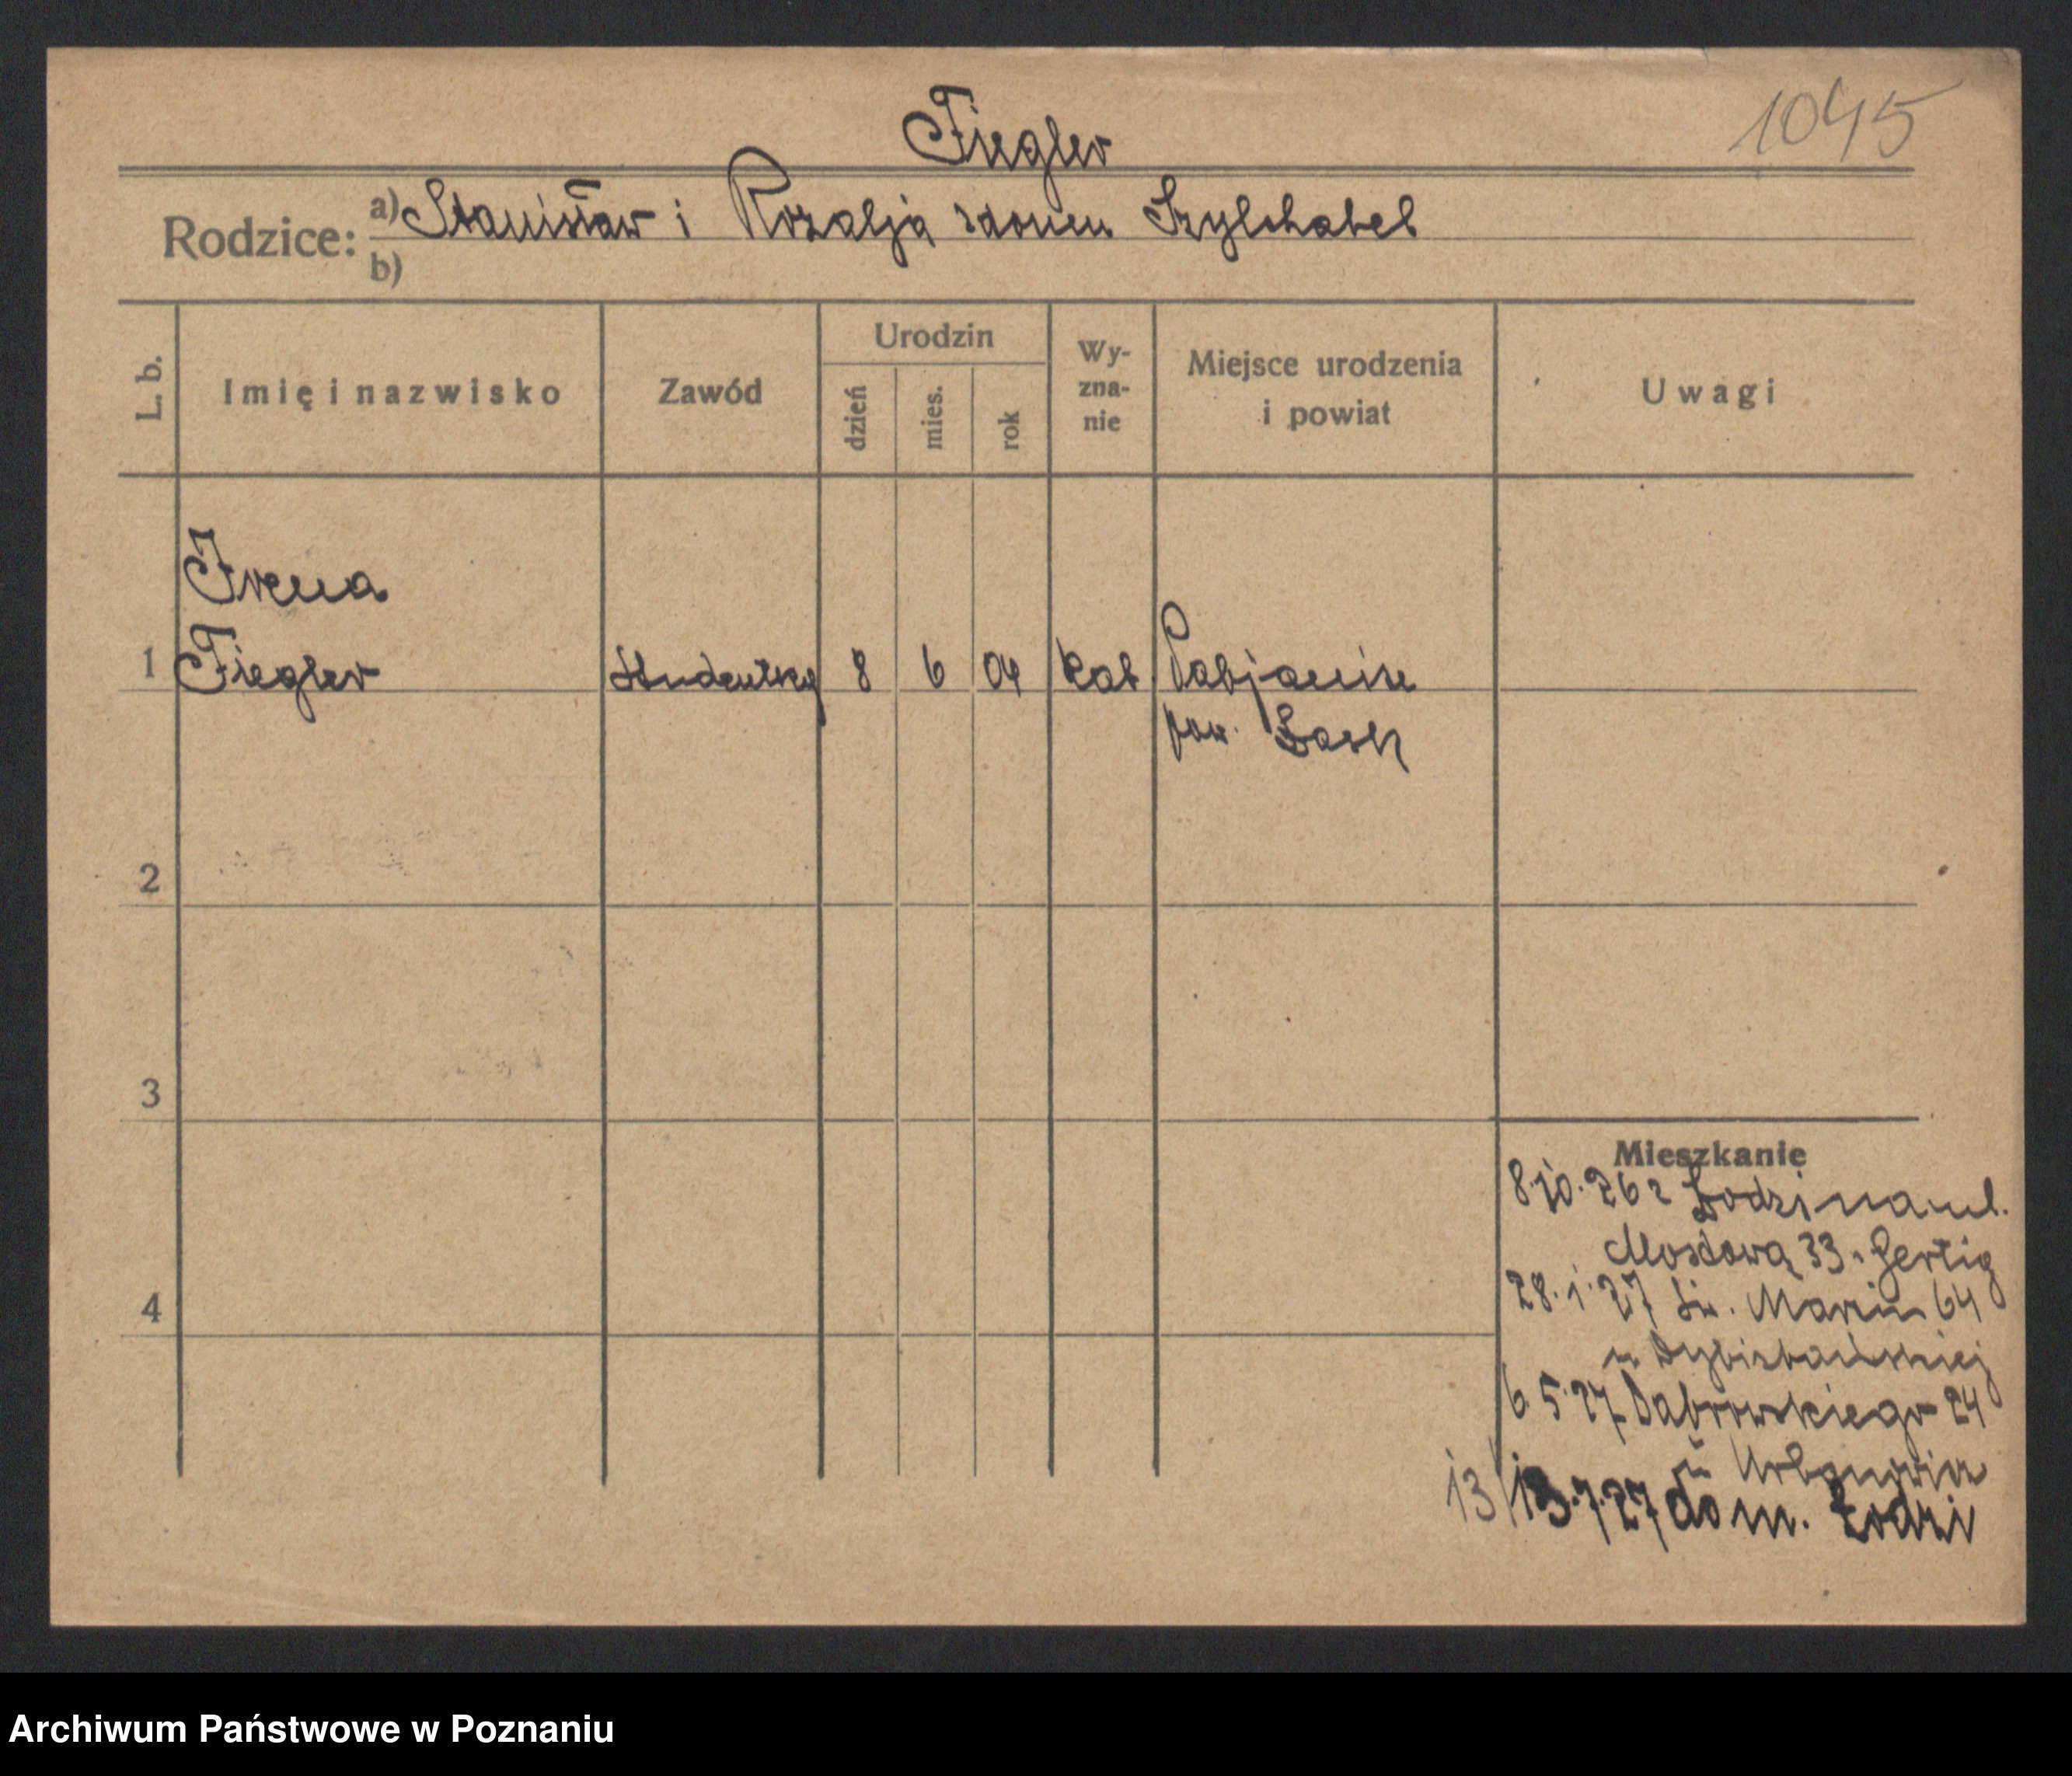 Fiegler
1045
Rodzice: a) Stanisław i Rozalja z domu Szylchabel
b)
L. b. Imię i nazwisko Zawód Urodzin dzień mies. rok Wyznanie Miejsce urodzenia i powiat Uwagi
Irena
1 Fiegler Studentka 8 6 04 kat Pabjanice
pow. Łask
2
3
Mieszkanie
8.10.26 z Łodzi na ul.
Mostową 33
28.1.27 św. Marcin 64
4
6 5.27 Dąbrowskiego 24
u Urbanowicz
13 13.7.27 do m. Łodzi
Archiwum Państwowe w Poznaniu